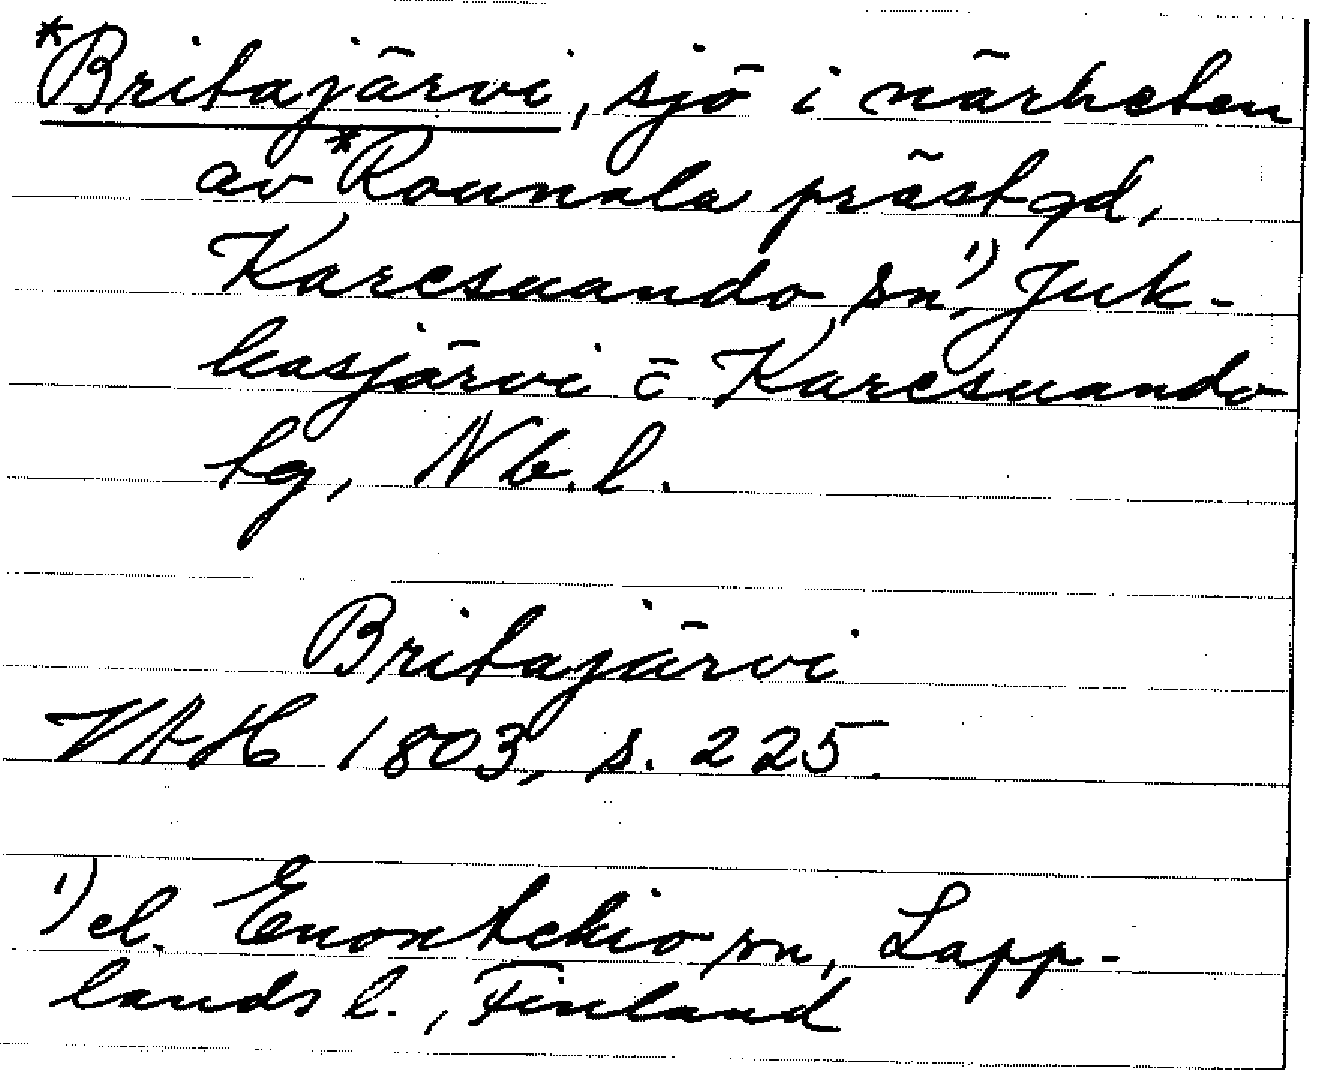 *Britajärvi, sjö i närheten
av *Rounala prästgd,
Karesuando sn¹⁾, Juk-
kasjärvi o Karesuando
tg, Nb. l.
Britajärvi
VAH 1803, s. 225.
¹⁾ el. Enontekio sn, Lapp-
lands l., Finland